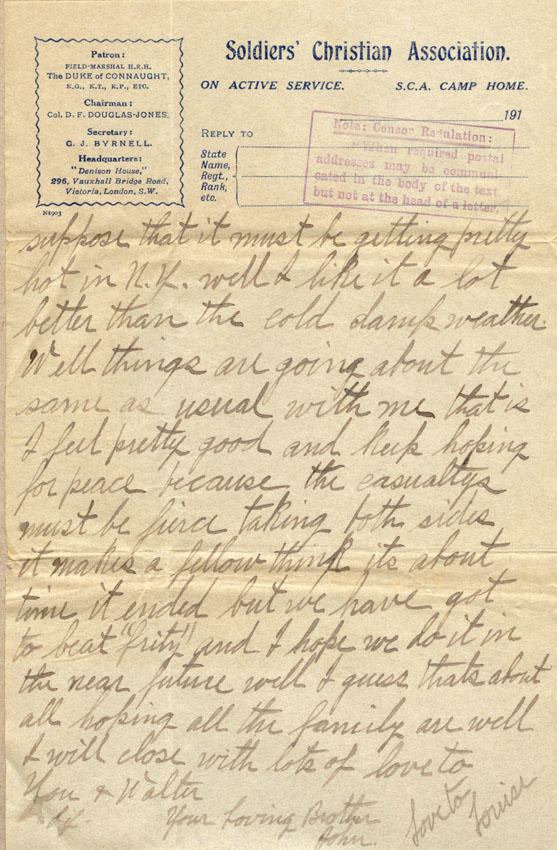 Patron:
FIELD-MARSHAL H.R.H.
The DUKE of CONNAUGHT,
K.G., K.T., K.P., ETC.
Chairman:
Col. D. F. DOUGLAS-JONES.
Secretary:
G. J. BYRNELL.
Headquarters:
"Denison House,"
296, Vauxhall Bridge Road,
Victoria, London, S.W.
N1903
Soldiers' Christian Association.
ON ACTIVE SERVICE. S.C.A. CAMP HOME.
191
REPLY TO
State
Name,
Regt.,
Rank,
etc.
Note: Censor Regulation:
"When required postal
addresses may be communi-
cated in the body of the text
but not at the head of a letter.
suppose that it must be getting pretty
hot in N.Y. well I like it a lot
better than the cold damp weather.
Well things are going about the
same as usual with me that is
I feel pretty good and keep hoping
for peace because the casualtys
must be fierce taking both sides
it makes a fellow think its about
time it ended but we have got
to beat "Fritz" and I hope we do it in
the near future well I guess thats about
all hoping all the family are well
I will close with lots of love to
You & Walter
Your Loving Brother
John.
Love to
Louise